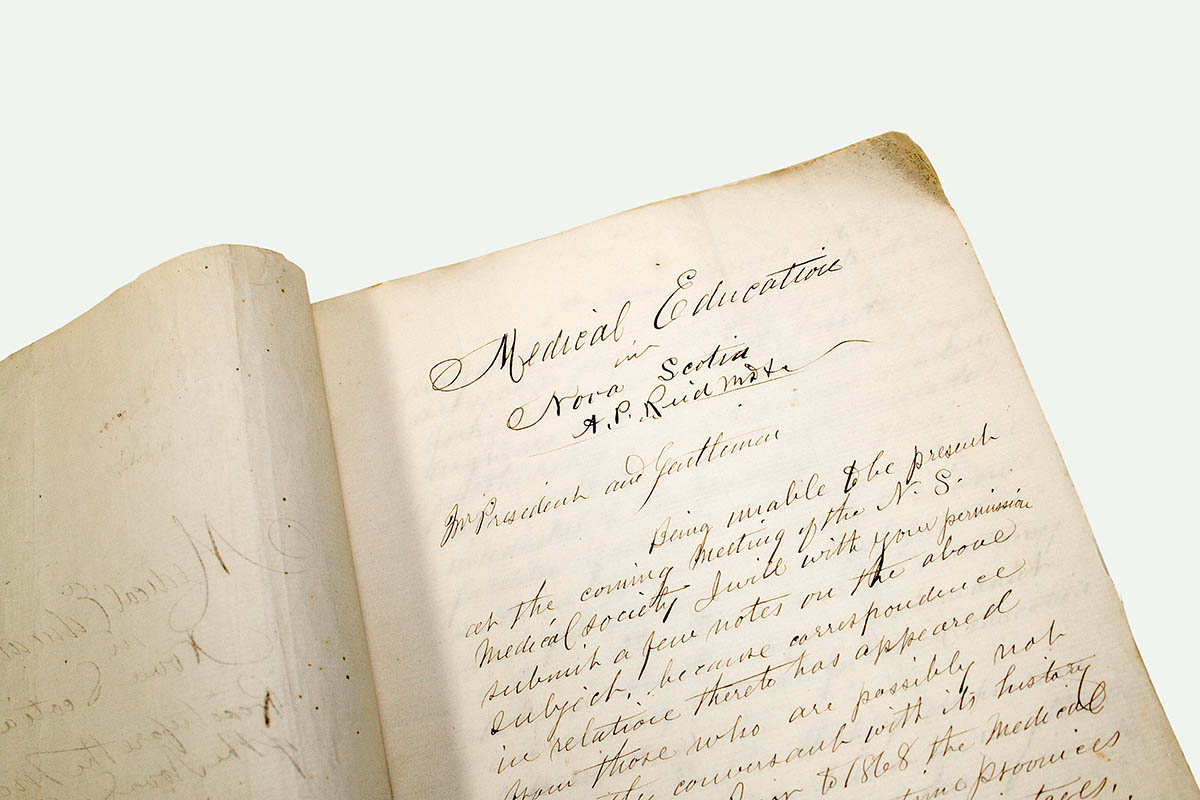 Medical Education
in
Nova Scotia
A. P. Reid MD &c
Mr President and Gentlemen
Being unable to be present
at the coming Meeting of the N. S.
Medical society I will with your permission
submit a few notes on the above
subject, because correspondence
in relation thereto has appeared
from those who are possibly not
conversant with its history
to 1868 the Medical
provinces